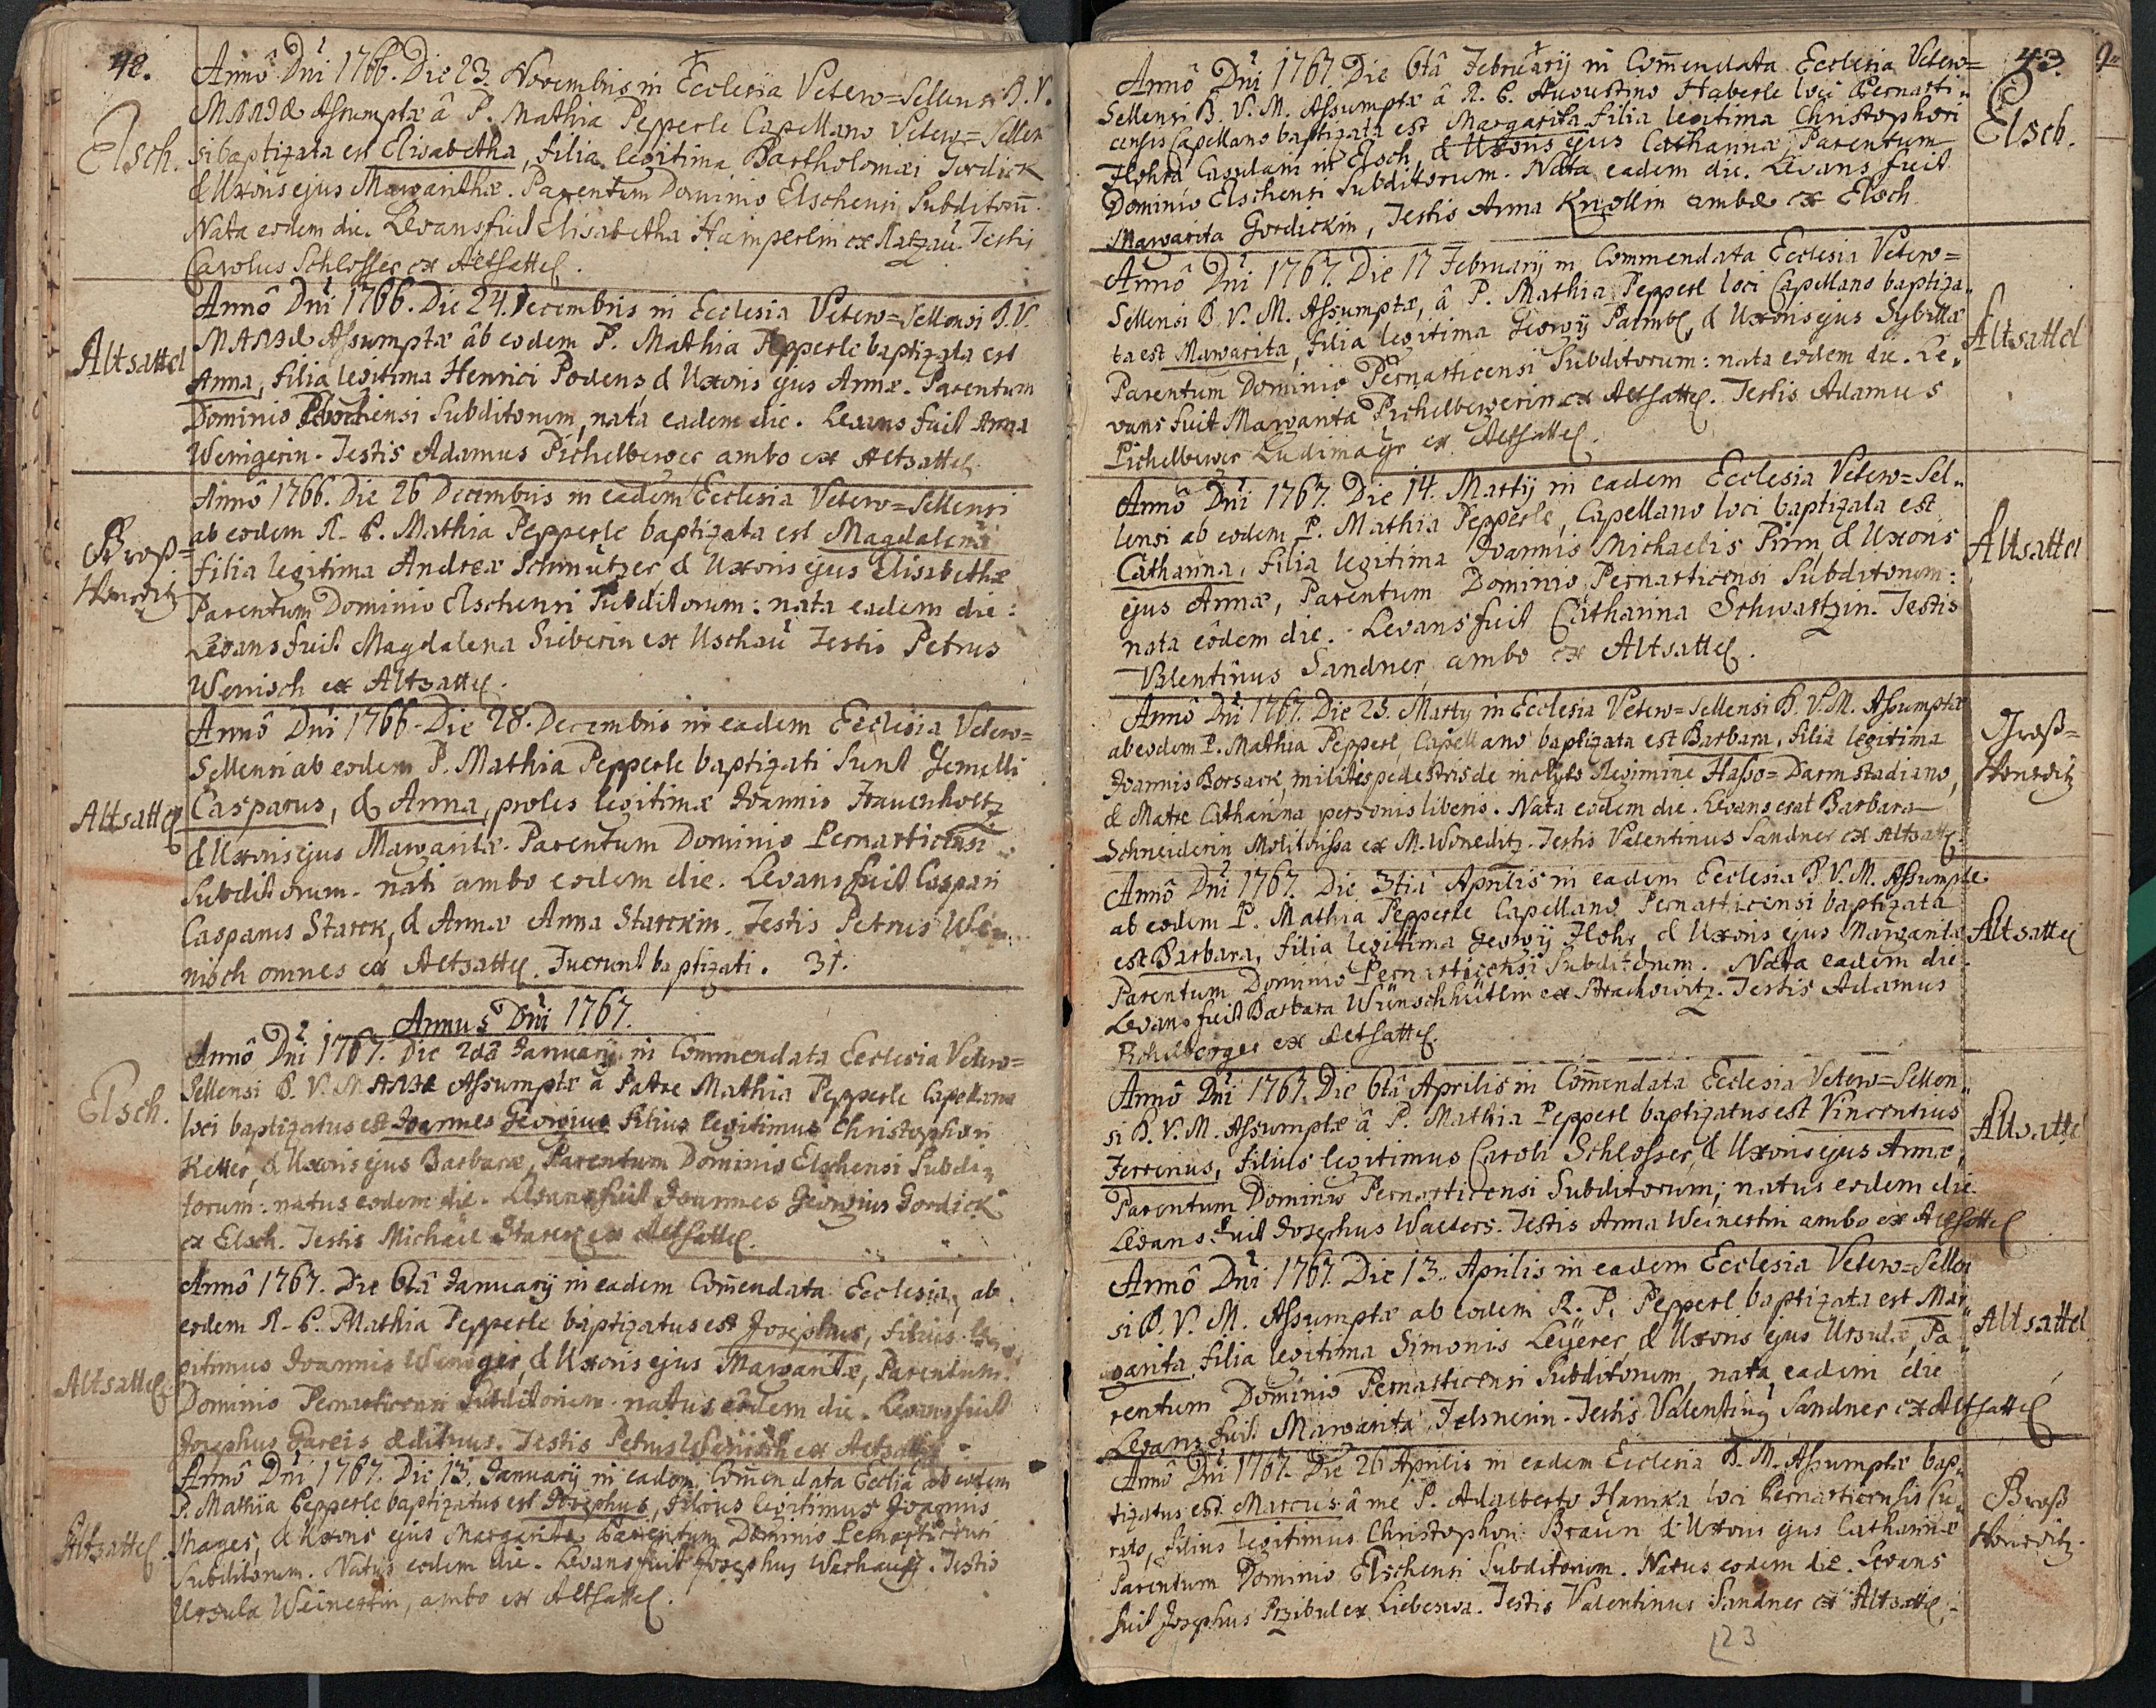 48.
Annô Dni 1766. Die 23. Novembris in Ecclesia Vetero=Sellensi B.V.
MARIÆ Assumptæ â P. Mathia Pepperle Capellano Vetero=Sellen
Elsch.
si baptizata est Elisabetha, filia legitima Bartholomæi Gordick
& Uxoris ejus Margarithæ. Parentum Dominio Elschensi Subditorū.
Nata eodem die. Levans fuit Elisabetha Hamperlin ex Natzau. Testis
Carolus Schlosser ex Altsattel.
Annô Dni 1766. Die 24. Decembris in Ecclesia Vetero=Sellensi B.V.
Altsattel
MARIÆ Assumptæ âb eodem P. Mathia Pepperle baptizata est
Anna, filia legitima Henrici Podens, & Uxoris ejus Annæ. Parentum
Dominio Subditorum, nata eadem die. Levans fuit Anna
Wenigerin. Testis Adamus Pichelberger ambo ex Altsattel.
Annô 1766. Die 26 Decembris in eadem Ecclesia Vetero=Sellensi
Groß=
ab eodem R. P. Mathia Pepperle baptizata est Magdalena
filia legitima Andreæ Schmutzer & Uxoris ejus Elisabethæ
Wonetitz
Parentum Dominio Elschensi Subditorum: nata eadem die:
Levans fuit Magdalena Sieberin ex Uschau Testis Petrus
Wenisch ex Altsattel.
Annô Dni 1766. Die 28. Decembris in eadem Ecclesia Vetero=
Sellensi ab eodem P. Mathia Pepperle baptizati sunt Gemelli
Altsattel
Casparus, & Anna, proles legitimæ Joannis Frauenholtz
& Uxoris ejus Margaritæ. Parentum Dominio Pernarticensi
Subditorum. nati ambo eodem die. Levans fuit Caspari
Casparus Starck, & Annæ Anna Starckin. Testis Petrus We=
nisch omnes ex Altsattel. Fuerunt baptizati. 31.
Annus Dni 1767.
Annô Dni 1767. Die 2dâ January in Commendata Ecclesia Vetero=
Sellensi B. V. MARIÆ Assumptæ â Patre Mathia Pepperle Capellano
Elsch.
loci baptizatus est Joannes Georgius filius legitimus Christophori
Keller, & Uxoris ejus Barbaræ, Parentum Dominio Elschensi Subdi=
torum: natus eodem die. Levans fuit Joannes Georgius Gordick
ex Elsch. Testis Michael Starck ex Altsattel.
Annô 1767. Die 6tâ January in eadem Com̄endata Ecclesia, ab
eodem R. P. Mathia Pepperle baptizatus est Josephus, filius le=
gitimus Joannis Weniger, & Uxoris ejus Margaritæ, Parentum
Altsattel
Dominio Pernarticensi Subditorum. natus eodem die. Levans fuit
Josephus Gareis ædituus. Testis Petrus Wenisch ex Altsattel.
Annô Dni 1767. Die 13. January in eadem Com̄endata Ecclia ab eodem
P. Mathia Pepperle baptizatus est Josephus, filius legitimus Joannis
Altsattel.
Mages, & Uxoris ejus Margaritæ Parentum Dominio Pernarticensi
Subditorum. Natus eodem die. Levans fuit Josephus Warhausz. Testis
Ursula Weinertin, ambo ex Altsattel.
43.
Annô Dni 1767. Die 6tâ February in Com̄endata Ecclesia Vetero=
Sellensi B. V. M. Assumptæ â R. P. Augustino Haberle loci Pernarti=
Elsch.
censis Capellano baptizata est Margarita filia legitima Christophori
Flohra Casulani in Elsch, & Uxoris ejus Catharinæ, Parentum
Dominio Elschensi Subditorum. Nata eadem die. Levans fuit
Margarita Gordickin, Testis Anna Knollin ambæ ex Elsch.
Annô Dni 1767. Die 17 February in Commendata Ecclesia Vetero=
Sellensi B. V. M. Assumptæ, â P. Mathia Pepperl loci Capellano baptiza=
Altsattel
ta est Margarita, filia legitima Georgy Palmbl, & Uxoris ejus Sybillæ
Parentum Dominio Pernarticensi Subditorum: nata eodem die. Le=
vans fuit Margarita Pichelbergerin ex Altsattel. Testis Adamus
Pichelberger Ludimagr ex Altsattel.
Annô Dni 1767. Die 14. Martij in eadem Ecclesia Vetero=Sel=
lensi ab eodem P. Mathia Pepperle, Capellano loci baptizata est
Altsattel
Catharina, filia legitima Joannis Michaelis Pirm, & Uxoris
ejus Annæ, Parentum Dominio Pernarticensi Subditorum:
nata eôdem die. Levans fuit Catharina Schwartzin. Testis
Valentinus Sandner ambo ex Altsattel.
Annô Dni 1767. Die 25. Marty in Ecclesia Vetero=Sellensi B. V. M. Assumptæ
ab eodem P. Mathia Pepperl Capellano baptizata est Barbara, filia legitima
Groß=
Wonetitz
Joannis Borsack, militis pedestris de inclyto Regimine Hasso=Darmstadiano,
& Matre Catharina personis liberis. Nata eodem die. Levans erat Barbara
Schneiderin Molitorissa ex M. Woneditz. Testis Valentinus Sandner ex Altsattel.
Annô Dni 1767. Die 3tiâ Aprilis in eadem Ecclesia B. V. M. Assumptæ
ab eodem P. Mathia Pepperle Capellano Pernarticensi baptizata
Altsattel
est Barbara, filia legitima Georgy Flohr, & Uxoris ejus Margaritæ
Parentum Dominio Pernarticensi Subditorum. Nata eadem die.
Levans fuit Barbara Wünschhüttlin ex Strachowitz. Testis Adamus
Pichelberger ex Altsattel.
Annô Dni 1767. Die 6tâ Aprilis in Com̄endata Ecclesia Vetero=Sellen=
si B. V. M. Assumptæ â P. Mathia Pepperl baptizatus est Vincentius
Altsattel
Ferrerius, filius legitimus Caroli Schlosser, & Uxoris ejus Annæ,
Parentum Dominio Pernarticensi Subditorum; natus eodem die.
Levans fuit Josephus Walters. Testis Anna Weinertin ambo ex Altsattel
Annô Dni 1767. Die 13. Aprilis in eadem Ecclesia Vetero=Sellen
si B. V. M. Assumptæ ab eodem R. P. Pepperl baptizata est Mar=
Altsattel
garita, filia legitima Simonis Leyerer, & Uxoris ejus Ursulæ, Pa=
rentum Dominio Pernarticensi Subditorum, nata eadem die
Levans fuit Margarita Felsnerin. Testis Valentinus Sandner ex Altsattel
Annô Dni 1767. Die 26 Aprilis in eadem Ecclesia B. M. Assumptæ bap=
tizatus est Marcus â me P. Adalberto Hamxa loci Pernarticensis Cu=
Groß
Wonetitz.
rato, filius legitimus Christophori Braun & Uxoris ejus Catharinæ
Parentum Dominio Elschensi Subditorum. Natus eodem die. Levans
fuit Josephus Przibul ex Liebeswa. Testis Valentinus Sandner ex Altsattel.
23